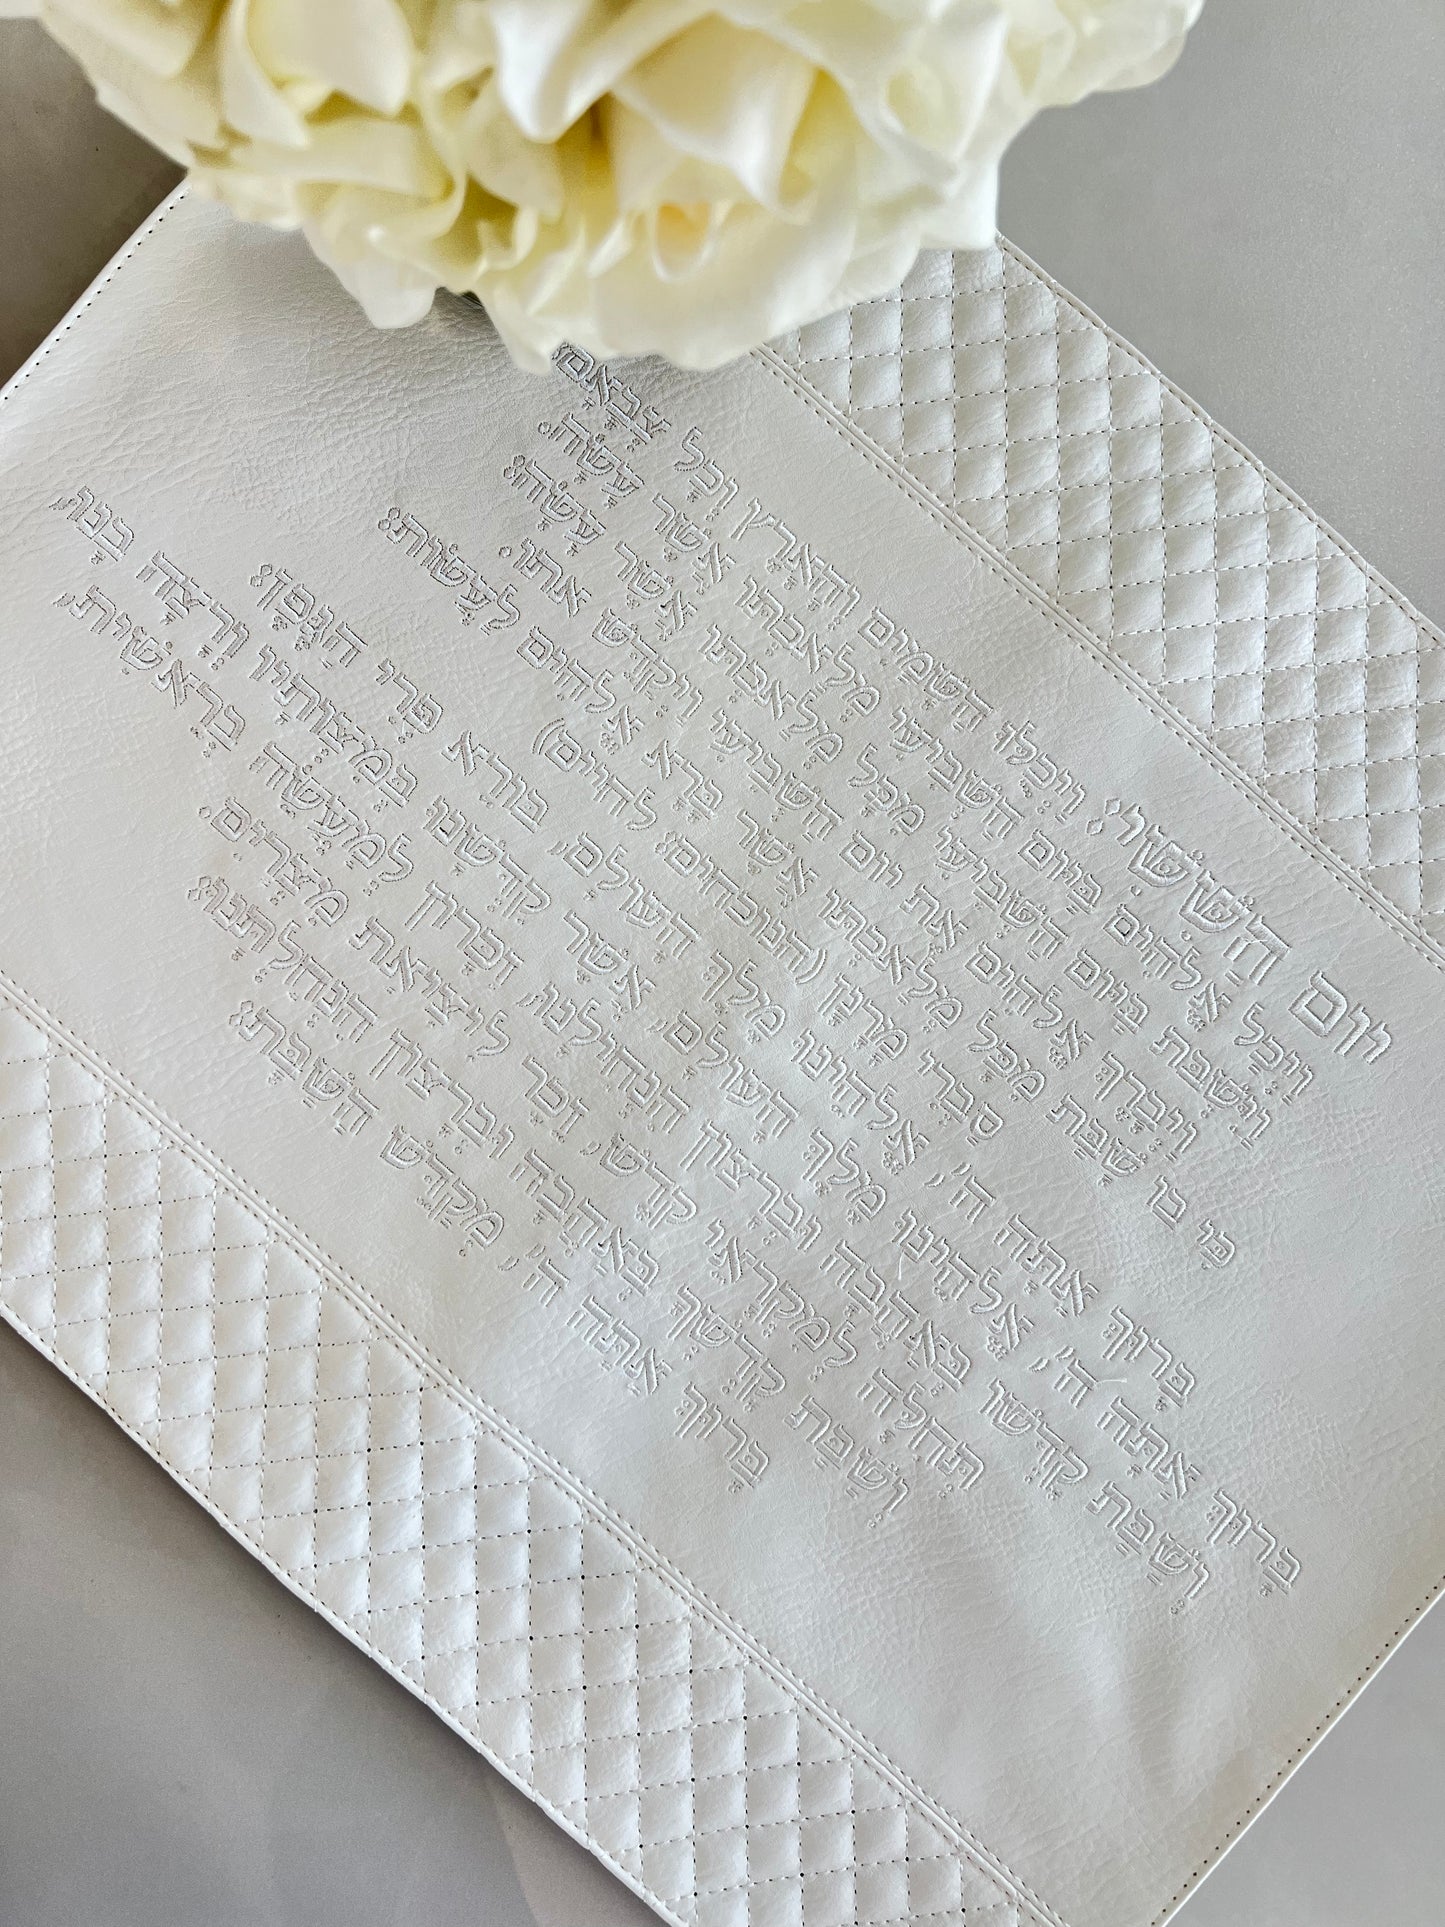 יוֹם הַשִּׁשִּׁי: וַיְכֻלּוּ הַשָּׁמַיִם וְהָאָרֶץ וְכָל צְבָאָם:
וַיְכַל אֱלֹהִים בַּיּוֹם הַשְּׁבִיעִי מְלַאכְתּוֹ אֲשֶׁר עָשָׂה.
וַיִּשְׁבֹּת בַּיּוֹם הַשְּׁבִיעִי מִכָּל מְלַאכְתּוֹ אֲשֶׁר עָשָׂה:
וַיְבָרֶךְ אֱלֹהִים אֶת יוֹם הַשְּׁבִיעִי וַיְקַדֵּשׁ אֹתוֹ.
כִּי בוֹ שָׁבַת מִכָּל מְלַאכְתּוֹ אֲשֶׁר בָּרָא אֱלֹהִים לַעֲשׂוֹת:
סַבְרִי מָרָנָן (הנוכחים: לחיים)
בָּרוּךְ אַתָּה ה', אֱלֹהֵינוּ מֶלֶךְ הָעוֹלָם, בּוֹרֵא פְּרִי הַגֶּפֶן:
בָּרוּךְ אַתָּה ה', אֱלֹהֵינוּ מֶלֶךְ הָעוֹלָם, אֲשֶׁר קִדְּשָׁנוּ בְּמִצְוֹתָיו וְרָצָה בָנוּ,
וְשַׁבַּת קָדְשׁוֹ בְּאַהֲבָה וּבְרָצוֹן הִנְחִילָנוּ, זִכָּרוֹן לְמַעֲשֵׂה בְרֵאשִׁית,
תְּחִלָּה לְמִקְרָאֵי קֹדֶשׁ, זֵכֶר לִיצִיאַת מִצְרָיִם.
וְשַׁבַּת קָדְשְׁךָ בְּאַהֲבָה וּבְרָצוֹן הִנְחַלְתָּנוּ:
בָּרוּךְ אַתָּה ה', מְקַדֵּשׁ הַשַּׁבָּת: